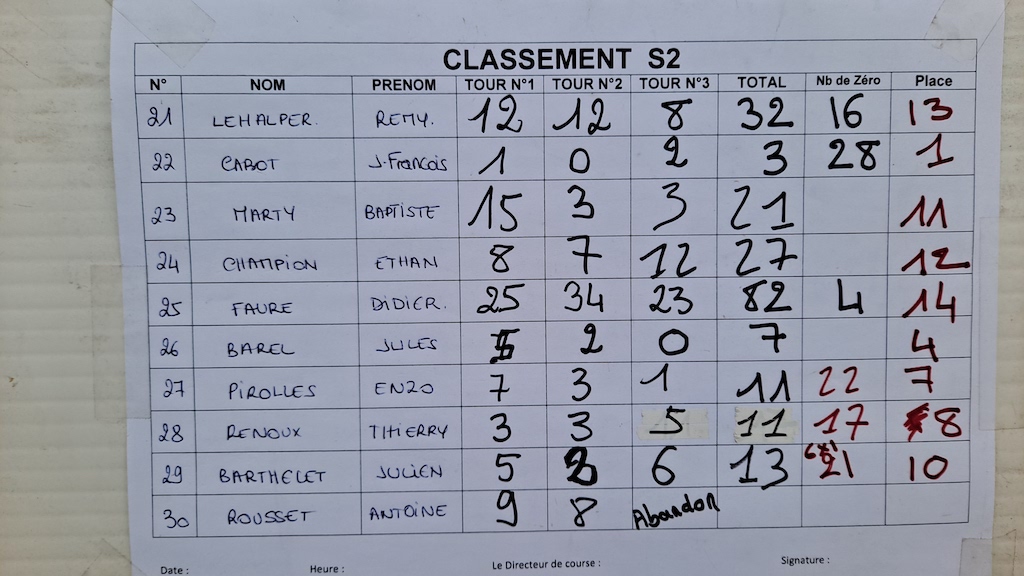 CLASSEMENT S2
N° NOM PRENOM TOUR N°1 TOUR N°2 TOUR N°3 TOTAL Nb de Zéro Place
21 LEHALPER. REMY. 12 12 8 32 16 13
22 CABOT J-François 1 0 2 3 28 1
23 MARTY BAPTISTE 15 3 3 21 11
24 CHAMPION ETHAN 8 7 12 27 12
25 FAURE DIDIER. 25 34 23 82 4 14
26 BAREL JULES 5 2 0 7 4
27 PIROLLES ENZO 7 3 1 11 22 7
28 RENOUX THIERRY 3 3 5 11 17 8
29 BARTHELET JULIEN 5 2 6 13 21 10
30 ROUSSET ANTOINE 9 8 Abandon
Date : Heure : Le Directeur de course : Signature :